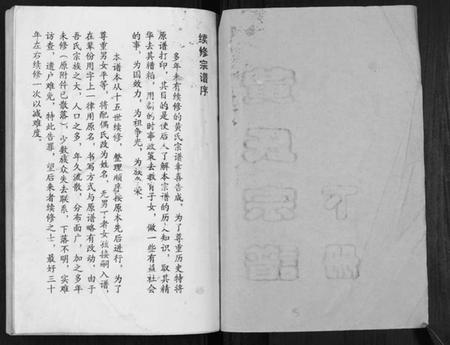 续修宗谱序
多年未有续修的黄氏宗谱幸喜告成,为了尊重历史特将
原谱打印,其目的是使后人了解本宗谱的历人知识,取其精
华去其糟粕,用新的时事政策去教育子女,做一些有益社会
的事,为国效力,为祖争光,为族荣。
本谱本从十五世续修,整理顺序按原本先后进行,为了
尊重男女平等,将配偶氏改为姓名,无男丁者女接嗣入谱,
在辈份用字上一律用原名,书写方式与原谱略有改动,由于
吾氏宗族之大,人口之多,年久流散,分布面广,加之多年
未修(原附件已散落),少数族众失去联系,下落不明,实难
访查,遗户难免,特此告罪,望后来者续修之士,最好三十
年左右续修一次以减难度。
黄氏宗谱